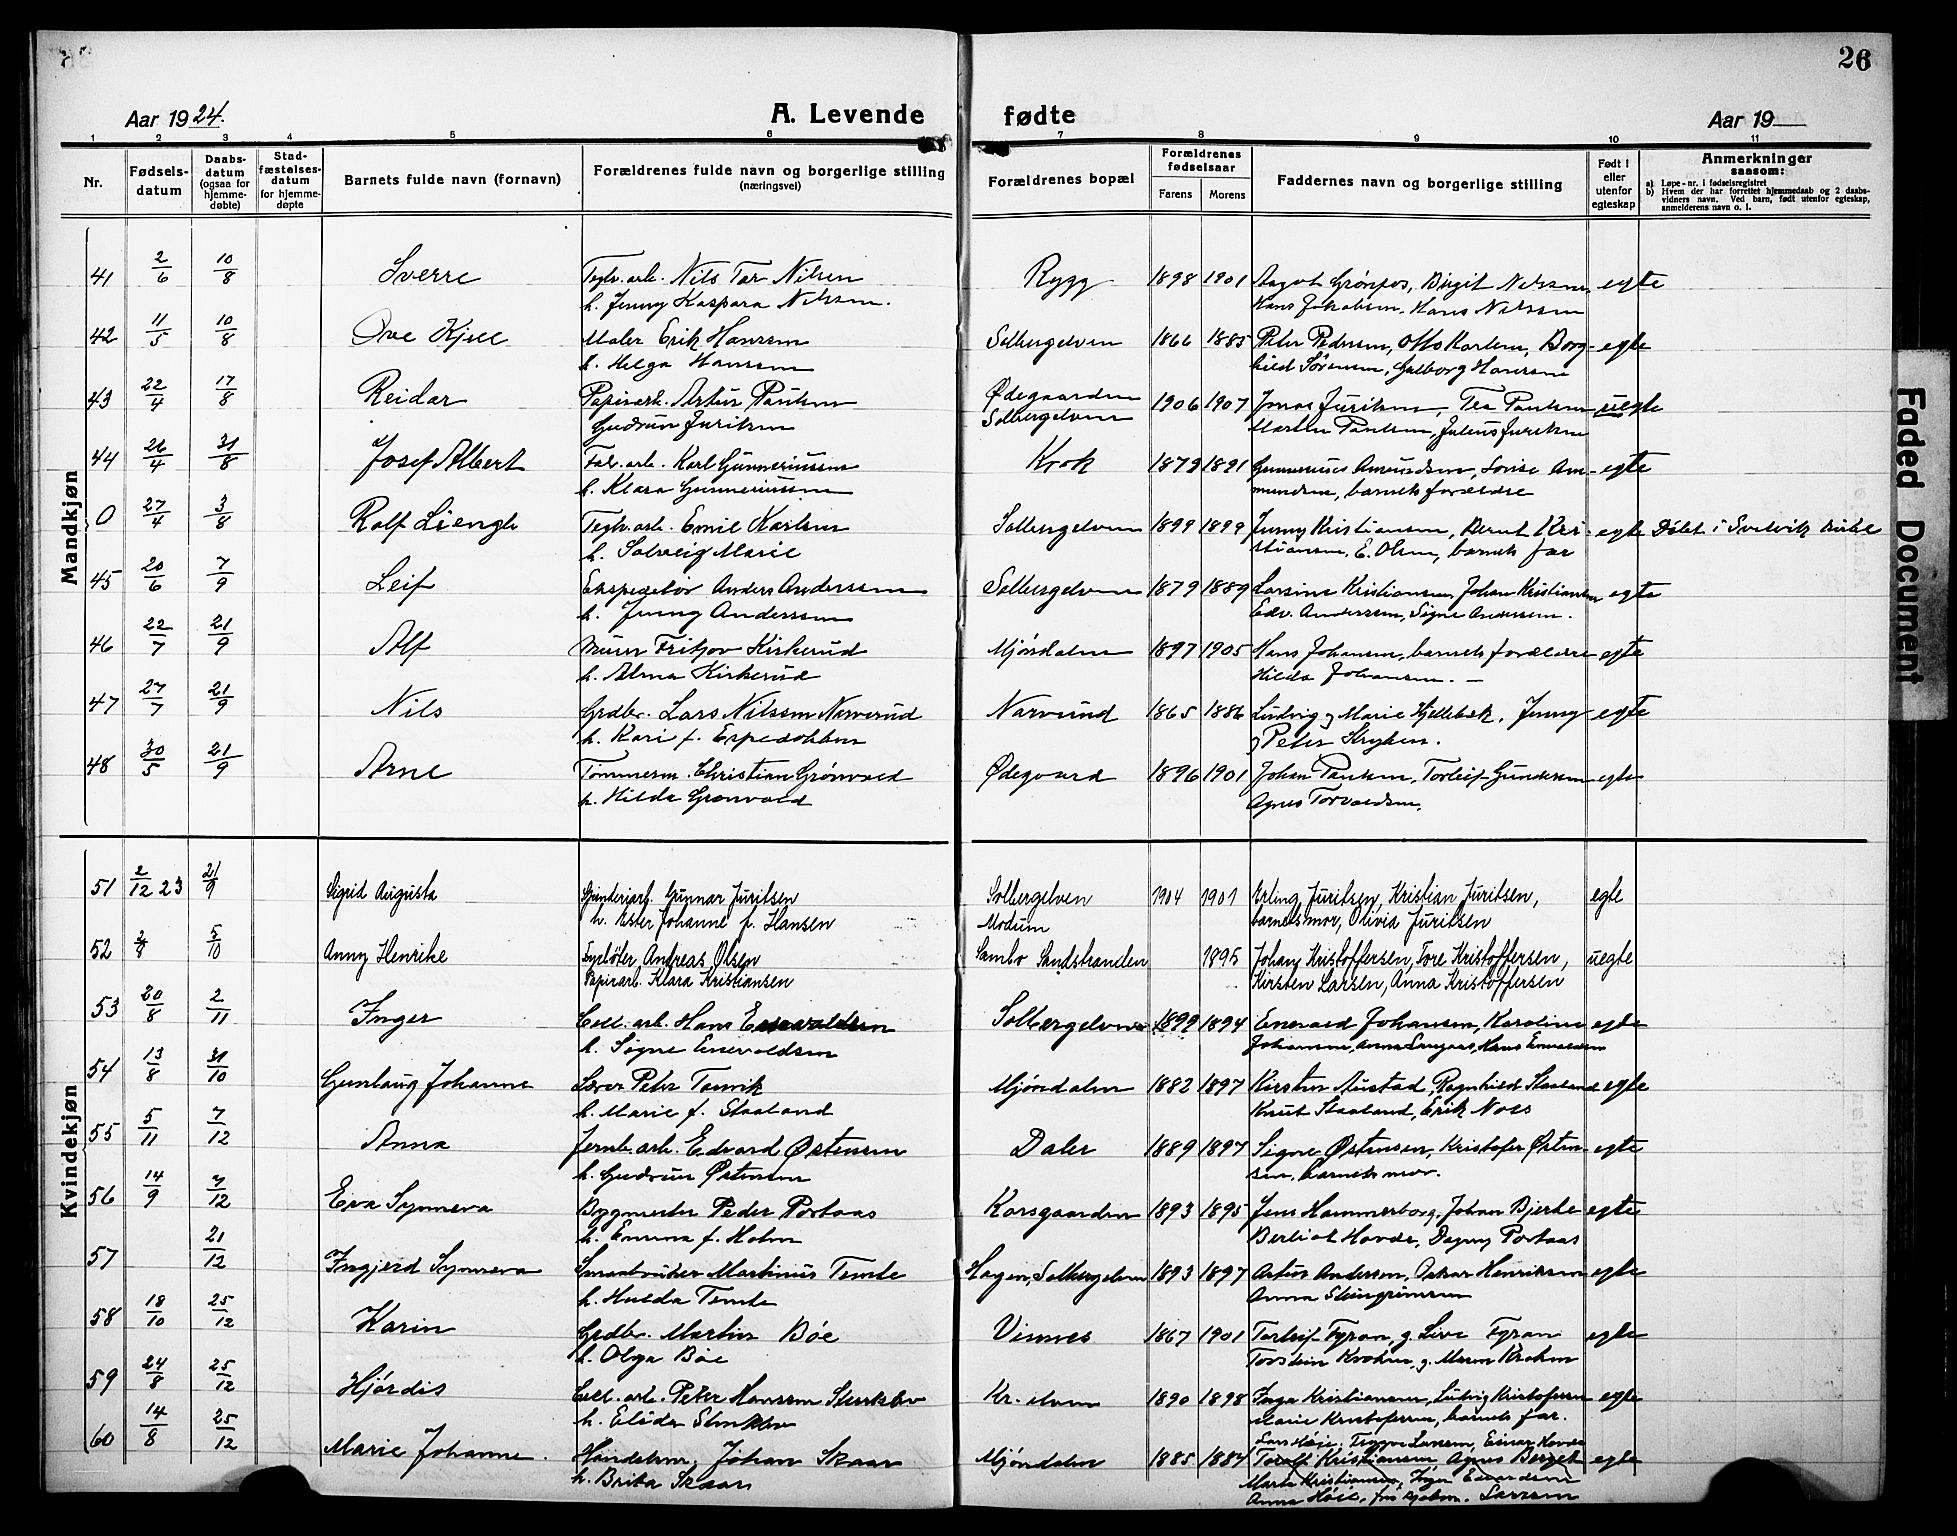 26
Aar 1924.
A. Levende fødte
Aar 19
1 2 3 4 5 6 7 8 9 10 11
Nr.
Fødsels-
datum
Daabs-
datum
(ogsaa for
hjemme-
døbte)
Stad-
fæstelses-
datum
for hjemme-
døpte
Barnets fulde navn (fornavn)
Forældrenes fulde navn og borgerlige stilling
(næringsvei)
Forældrenes bopæl
Forældrenes
fødselsaar
Farens Morens
Faddernes navn og borgerlige stilling
Født i
eller
utenfor
egteskap
Anmerkninger
saasom:
a) Løpe-nr. i fødselsregistret
b) Hvem der har forrettet hjemmedaab og 2 daabs-
vidners navn. Ved barn, født utenfor egteskap,
anmelderens navn o. l.
Mandkjøn
41 2/6 10/8 Sverre Teglv. arb. Nils Tor Nilsen Rygg 1898 1901 Aagot Grønfos, Birgit Nilssen egte
h. Jenny Kaspara Nilssen. Hans Jakobsen. Hans Nilssen
42 11/5 10/8 Ove Kjell Maler Erik Hanssen Solbergelven 1866 1885 Peter Pedersen, Otto Karlsen, Borg- egte
h. Helga Hanssen hild Sørensen, Galborg Hanssen
43 22/4 17/8 Reidar Papirarb. Artur Paulsen Ødegaarden 1906 1907 Jonas Juritsen, Tea Paulsen uegte
Gudrun Juritsen Solbergelven Martin Paulsen, Julius Juritsen
44 26/4 31/8 Josef Albert Fab. arb. Karl Gunneriussen Krok 1879 1891 Gunnerius Amundsen, Lovise Am- egte
h. Klara Gunneriussen mundsen, barnets forældre
0 27/4 3/8 Rolf Liengh Teglv. arb. Emil Karlsen Solbergelven 1899 1899 Jenny Kristiansen, Bernt Kri- egte Døbt i Svelvik kirke
h. Solveig Marie stiansen, E. Olsen, barnets far
45 20/6 7/9 Leif Ekspeditør Anders Anderssen Solbergelven 1879 1889 Larsine Kristiansen, Johan Kristiansen egte
h. Jenny Anderssen Edv. Anderssen, Signe Andersen.
46 22/7 21/9 Alf Murer Fritjov Kirkerud Mjøndalen 1897 1905 Hans Johansen, barnets forældre egte
h. Alma Kirkerud Hilda Johansen. -
47 27/7 21/9 Nils Grdbr. Lars Nilssen Narverud Narverud 1865 1886 Ludvig og Marie Hjellebek, Jenny egte
h. Kari f. Espedokken og Peter Stryken.
48 30/5 21/9 Arne Tømmerm. Christian Grønvold Ødegaard 1896 1901 Johan Paulsen, Torleif Gundersen egte
h. Hilda Grønvold Agnes Torvaldsen.
Kvindekjøn
51 2/12 23 21/9 Sigrid Augusta Spinderiarb. Gunnar Juritsen Solbergelven 1904 1901 Erling Juritsen, Kristian Juritsen, egte
h. Ester Johanne f. Hansen Modum barnets mor, Olivia Juritsen
52 2/8 5/10 Anny Henrike Fyrbøter Andreas Olsen Sambo Sandstranden 1895 Johan Kristoffersen, Tore Kristoffersen, uegte
Papirarb. Klara Kristiansen Kirsten Larsen, Anna Kristoffersen
53 20/8 2/11 Inger Cell. arb. Hans Enevoldsen Solbergelven 1899 1894 Enevold Johansen, Karoline egte
h. Signe Enevoldsen Johansen, Anna Haugaas, Hans Enevoldsen
54 13/8 31/10 Gunlaug Johanne Lærer Peter Tanvik Mjøndalen 1882 1897 Kirsten Austad, Ragnhild Staaland egte
h. Marie f. Staaland Knut Staaland, Erik Noss
55 5/11 7/12 Anna Jernb. arb. Edvard Østensen Daler 1889 1897 Signe Østensen, Kristofer Østen- egte
h. Gudrun Østensen sen, barnets mor.
56 14/9 7/12 Eva Synneva Byggmester Peder Portaas Korsgaarden 1893 1895 Jens Hammerborg, Johan Bjerke egte
h. Emma f. Holm Berliot Hovde, Dagny Portaas
57 21/12 Ingjerd Synneva Smaabruker Martinus Temte Hagen, Solbergelven 1893 1897 Artur Anderson, Oskar Henriksen egte
h. Hulda Temte Anna Steingrimsen
58 18/10 25/12 Karin Grdbr. Martin Bøe Vinnes 1867 1901 Torleif Fyran, g. Live Fyran egte
h. Olga Bøe Torstein Kroken, g. Maren Kroken
59 24/8 25/12 Hjørdis Cell. arb. Peter Hanssen Kr. elven 1890 1898 Inga Kristiansen, Ludvig Kristofersen egte
h. Elida Marie Kristofersen, barnets far.
60 14/8 25/12 Marie Johanne. Handelsm. Johan Skaar Mjøndalen 1885 1884 Lars Høie, Trygve Larssen, Einar Hovde
h. Brita Skaar Torolf Kristiansen, Agnes Berget egte
Marta Kristiansen, Inger Edvardsen
Anna Høie, Larssen
Faded Document